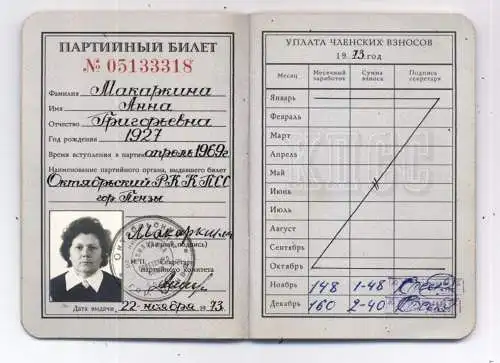 ПАРТИЙНЫЙ БИЛЕТ
№ 05133318
Фамилия Макаркина
Имя Анна
Отчество Григорьевна
Год рождения 1927
Время вступления в партию апрель 1969г
Наименование партийного органа, выдавшего билет
Октябрьский РК КПСС
гор. Пензы
Макаркина
(личная подпись)
М.П. Секретарь
партийного комитета
Дата выдачи 22 ноября 1973
УПЛАТА ЧЛЕНСКИХ ВЗНОСОВ
1973 год
Месяц Месячный заработок Сумма взноса Подпись секретаря
Январь
Февраль
Март
Апрель
Май
Июнь
Июль
Август
Сентябрь
Октябрь
Ноябрь 148 1-48
Декабрь 160 2-40
КПСС